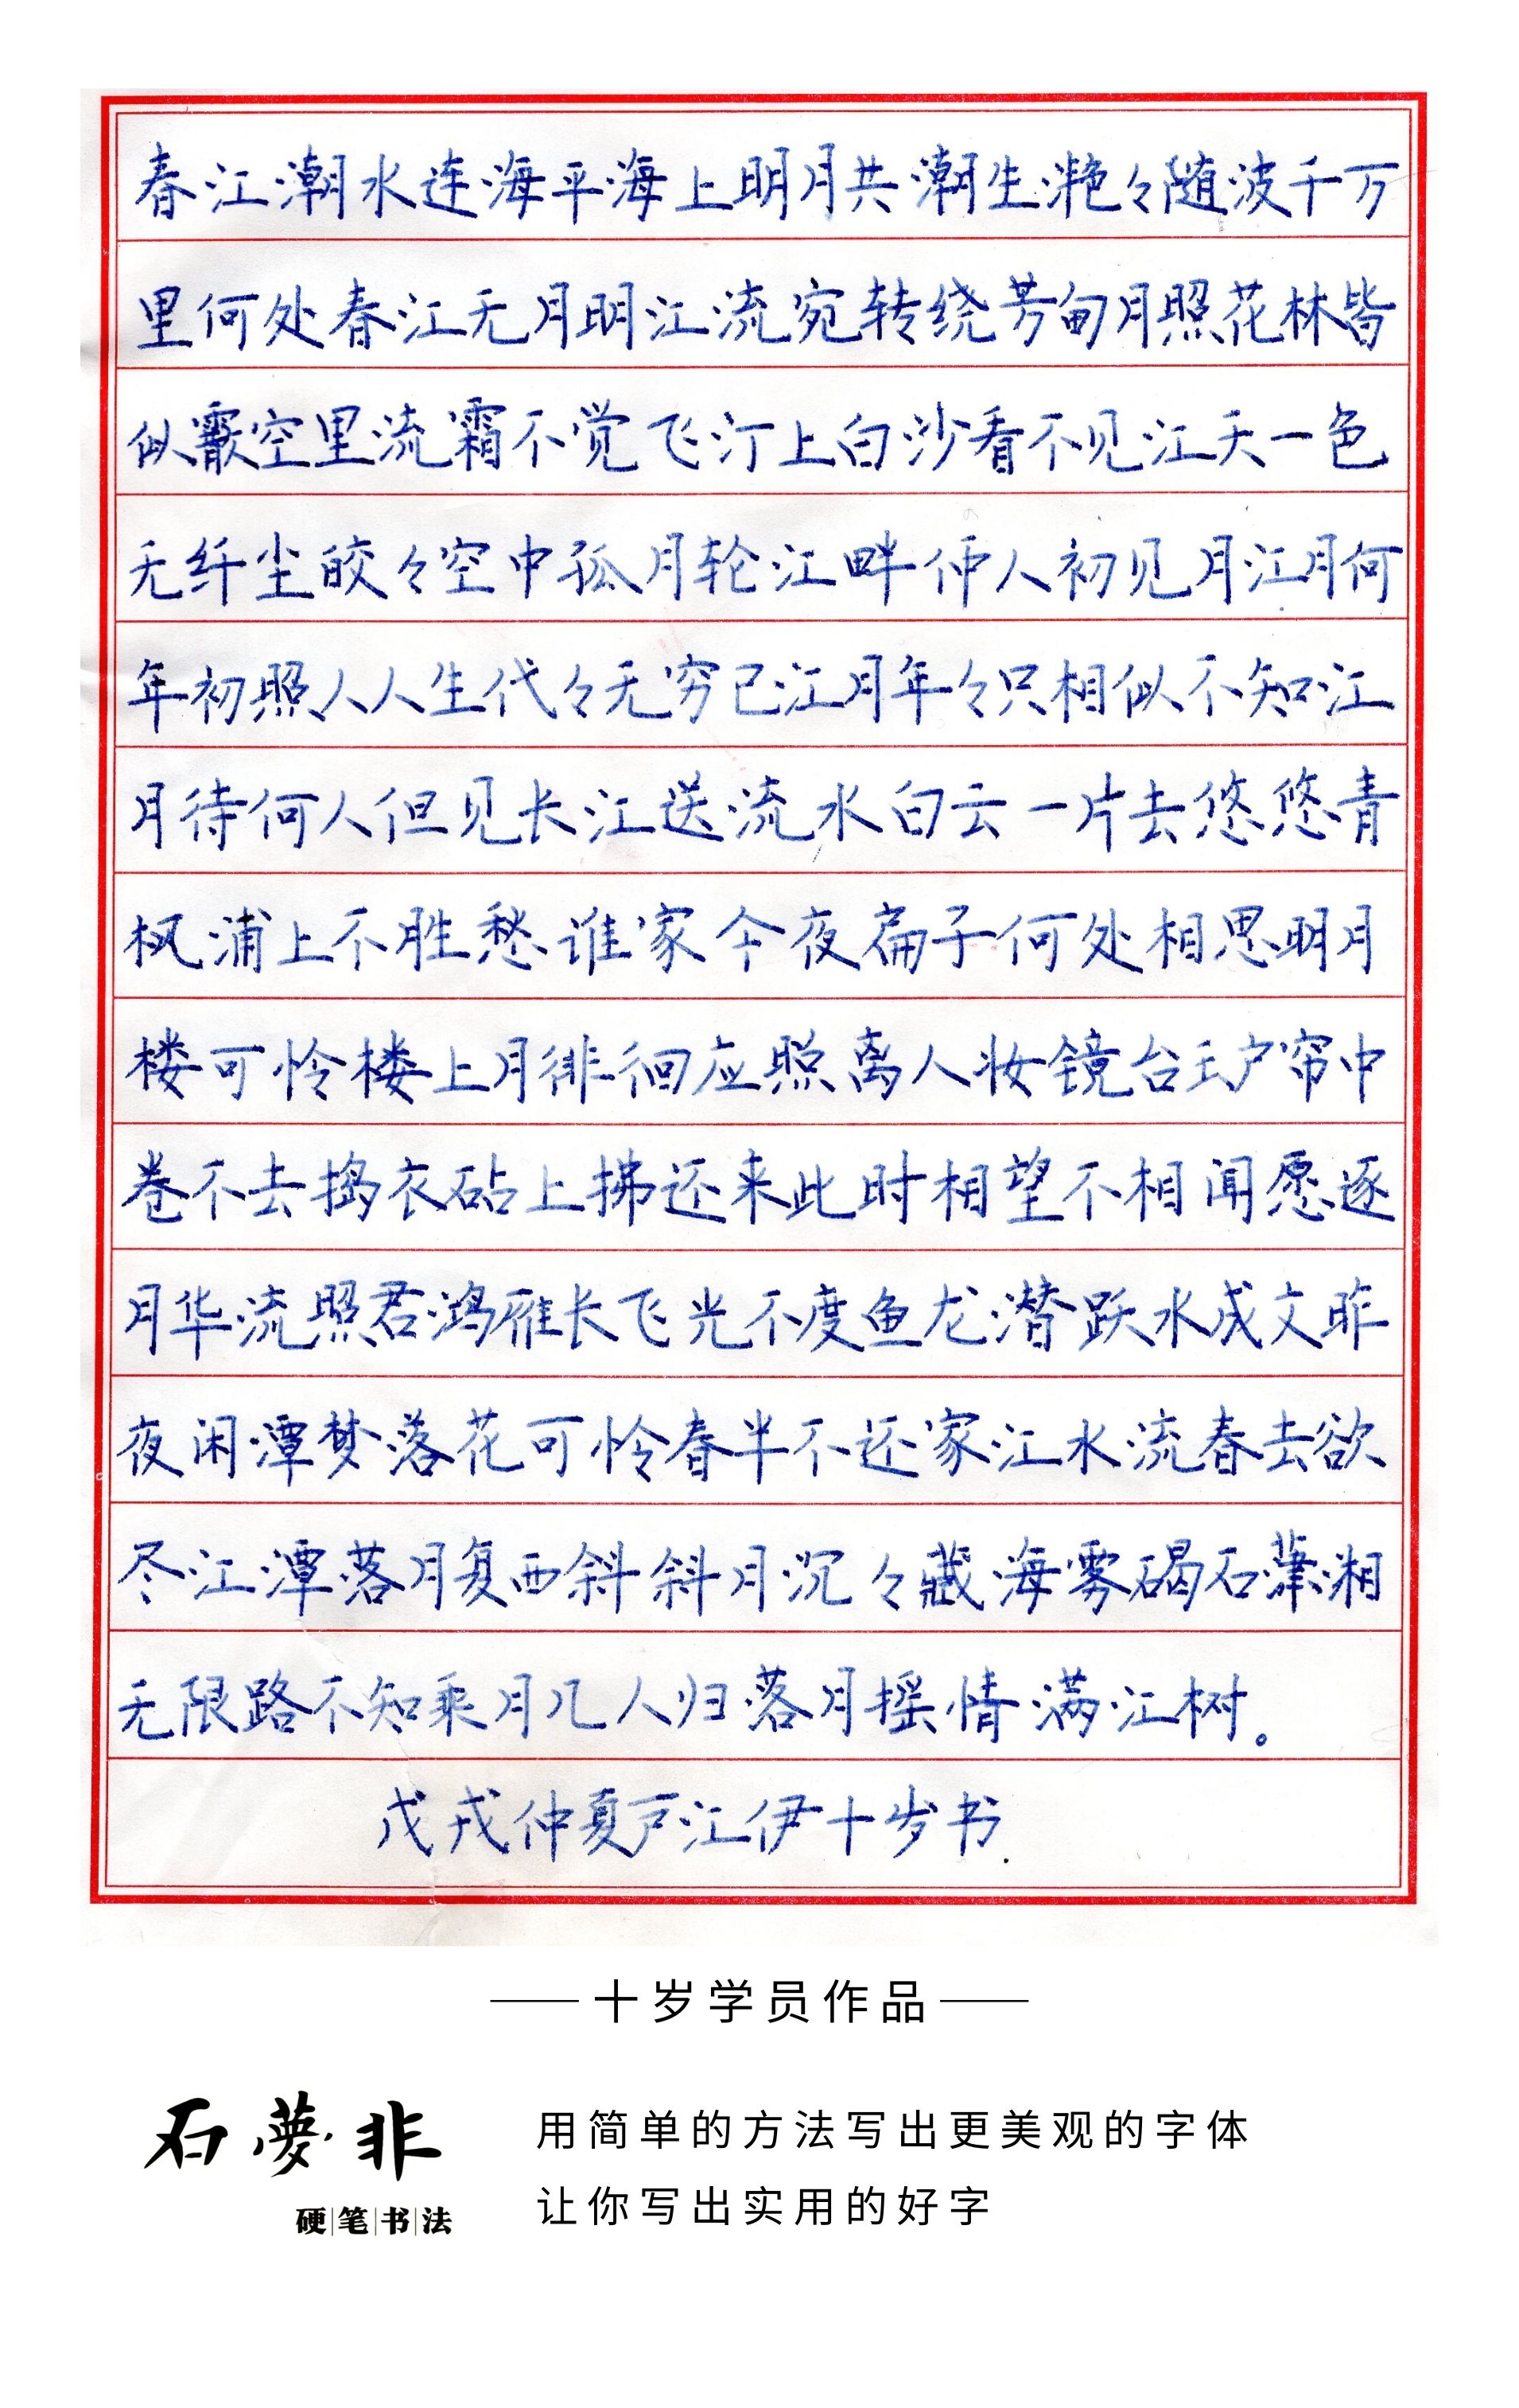 春江潮水连海平海上明月共潮生滟々随波千万
里何处春江无月明江流宛转绕芳甸月照花林皆
似霰空里流霜不觉飞汀上白沙看不见江天一色
无纤尘皎々空中孤月轮江畔仲人初见月江月何
年初照人人生代々无穷已江月年々只相似不知江
月待何人但见长江送流水白云一片去悠悠青
枫浦上不胜愁谁家今夜扁子何处相思明月
楼可怜楼上月徘徊应照离人妆镜台玉户帘中
卷不去捣衣砧上拂还来此时相望不相闻愿逐
月华流照君鸿雁长飞光不度鱼龙潜跃水成文昨
夜闲潭梦落花可怜春半不还家江水流春去欲
尽江潭落月复西斜斜月沉々藏海雾碣石潇湘
无限路不知乘月几人归落月摇情满江树。
戊戌仲夏芦江伊十岁书
十岁学员作品
石夢非
硬笔书法
用简单的方法写出更美观的字体
让你写出实用的好字